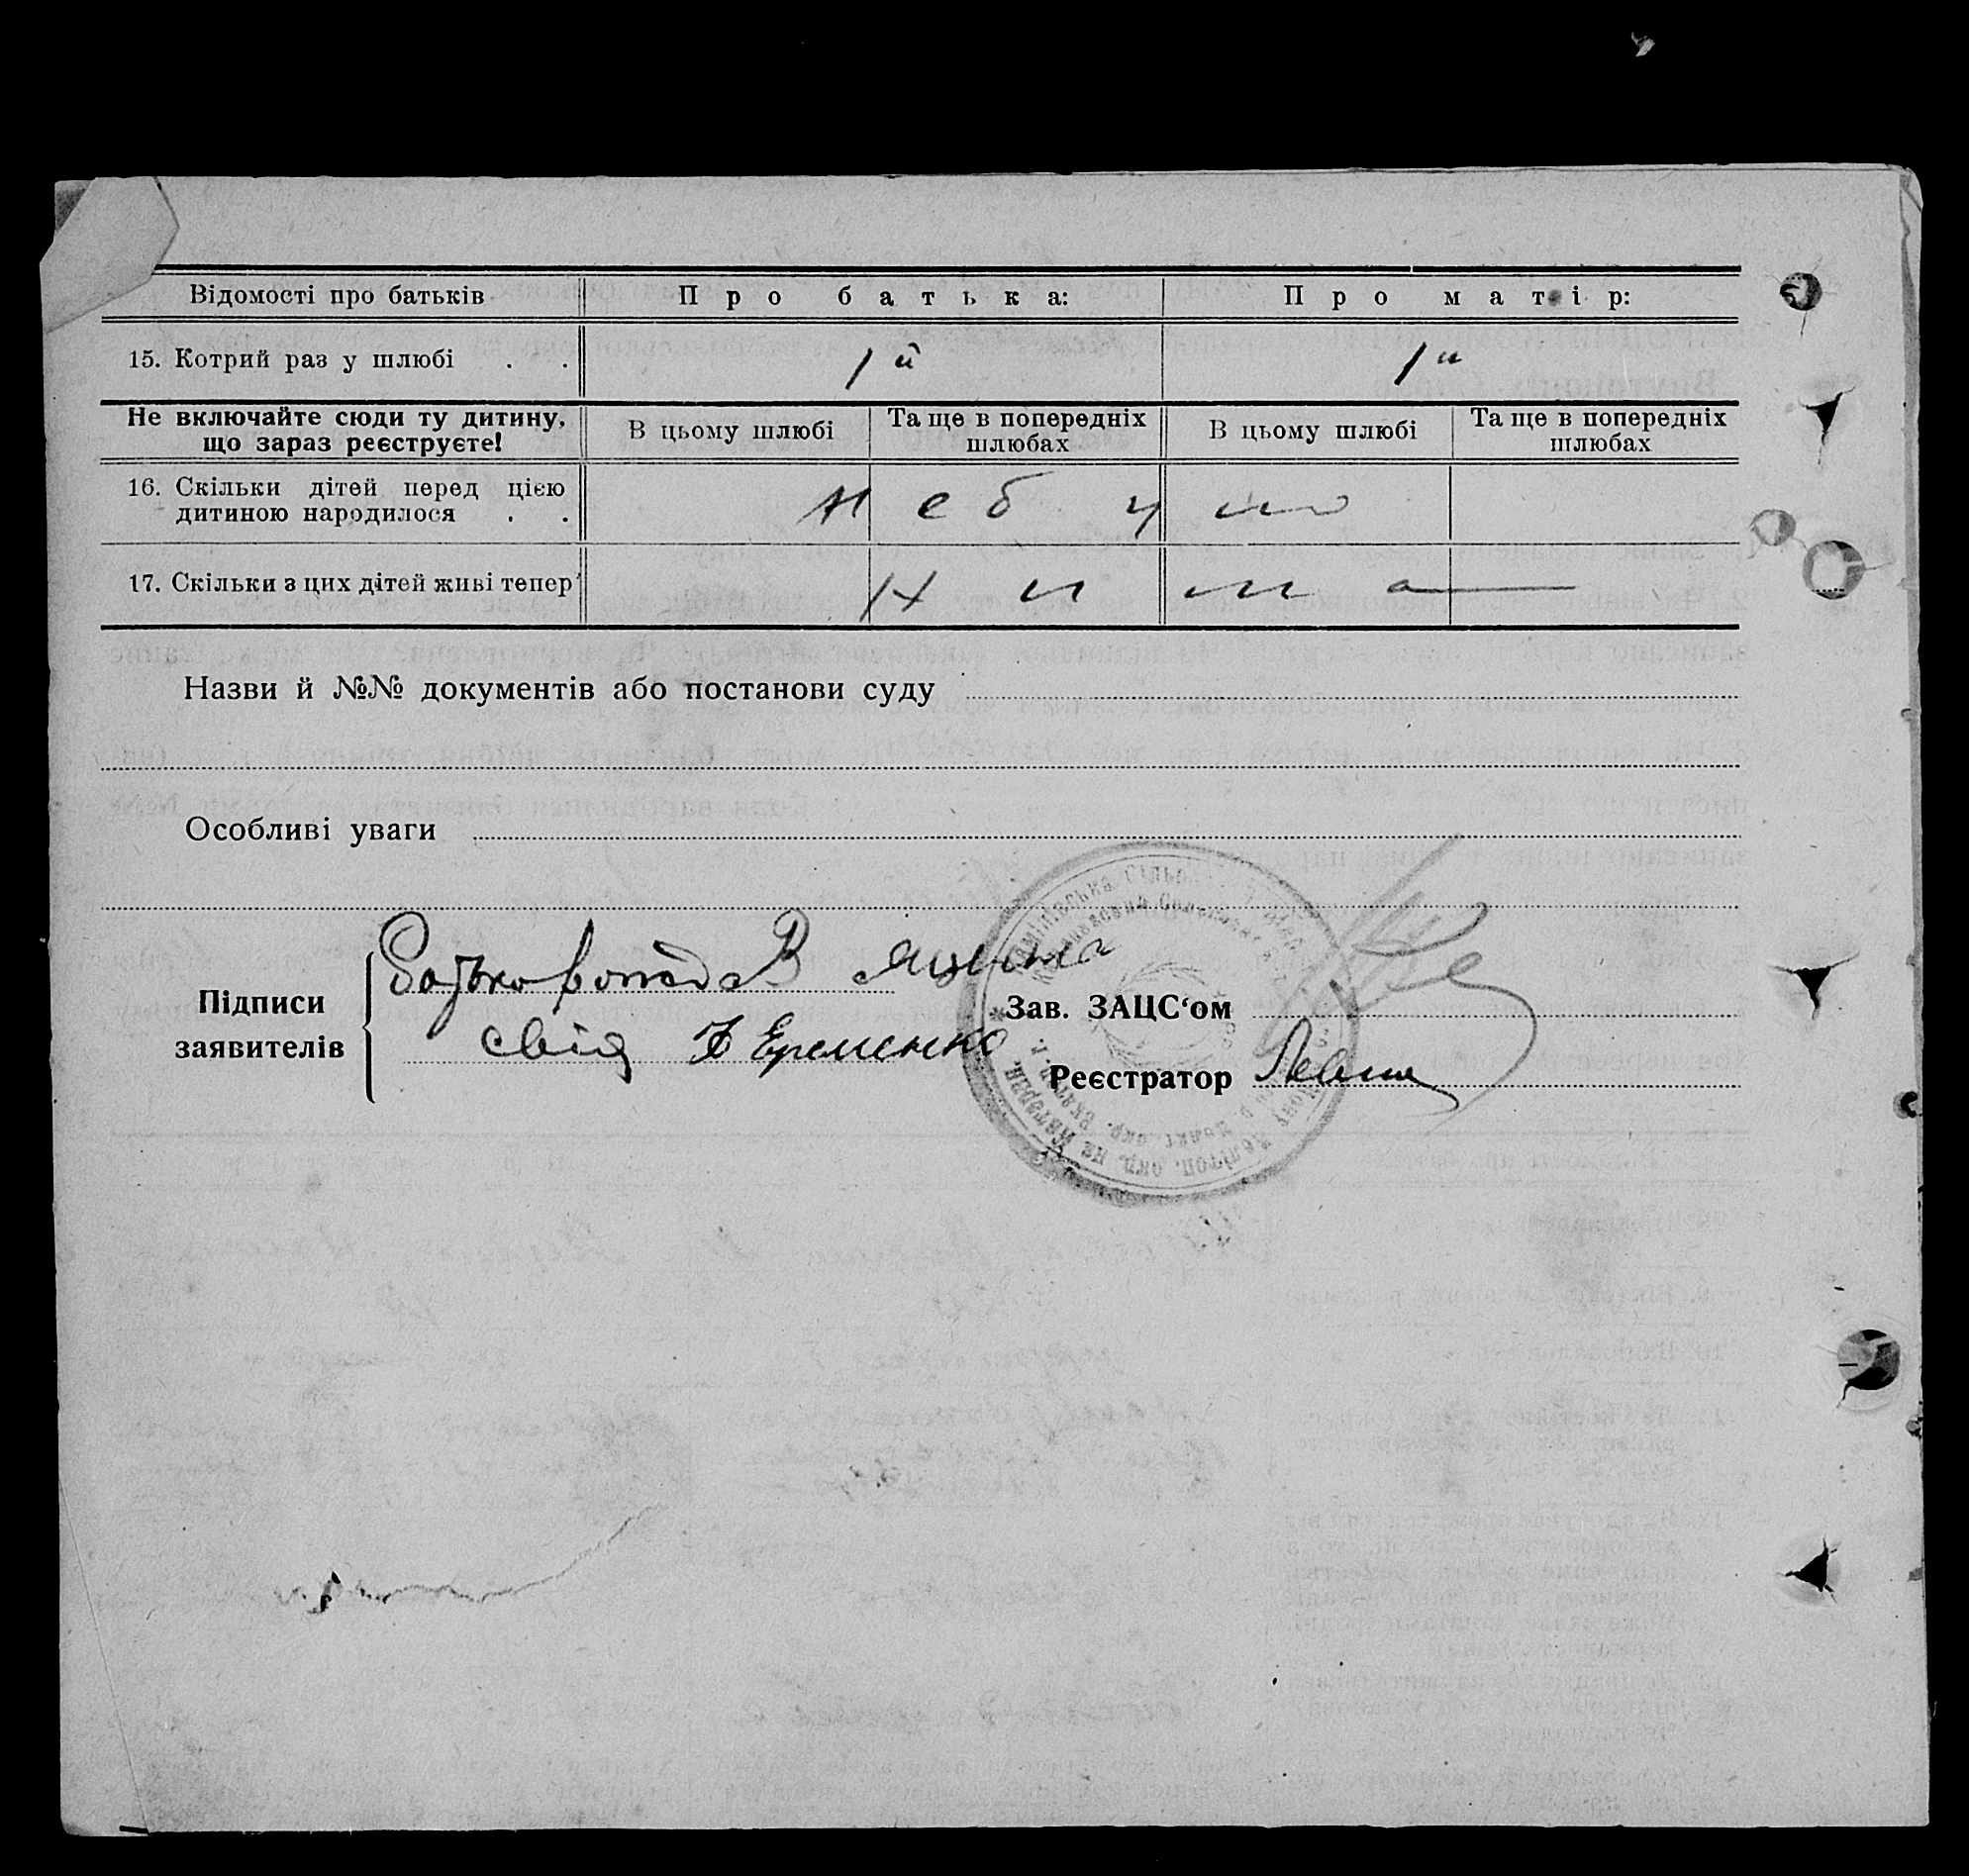 Відомості про батьків
Про батька:
Про матір:
15. Котрий раз у шлюбі . .
1й
1й
Не включайте сюди ту дитину, що зараз реєструєте!
В цьому шлюбі
Та ще в попередніх шлюбах
В цьому шлюбі
Та ще в попередніх шлюбах
16. Скільки дітей перед цією
дитиною народилося . .
не було
17. Скільки з цих дітей живі тепер
Нима
Назви й №№ документів або постанови суду
Особливі уваги
Підписи заявителів
Батько В Яцина
свід Єременко
Зав. ЗАЦС‘ом
Реєстратор